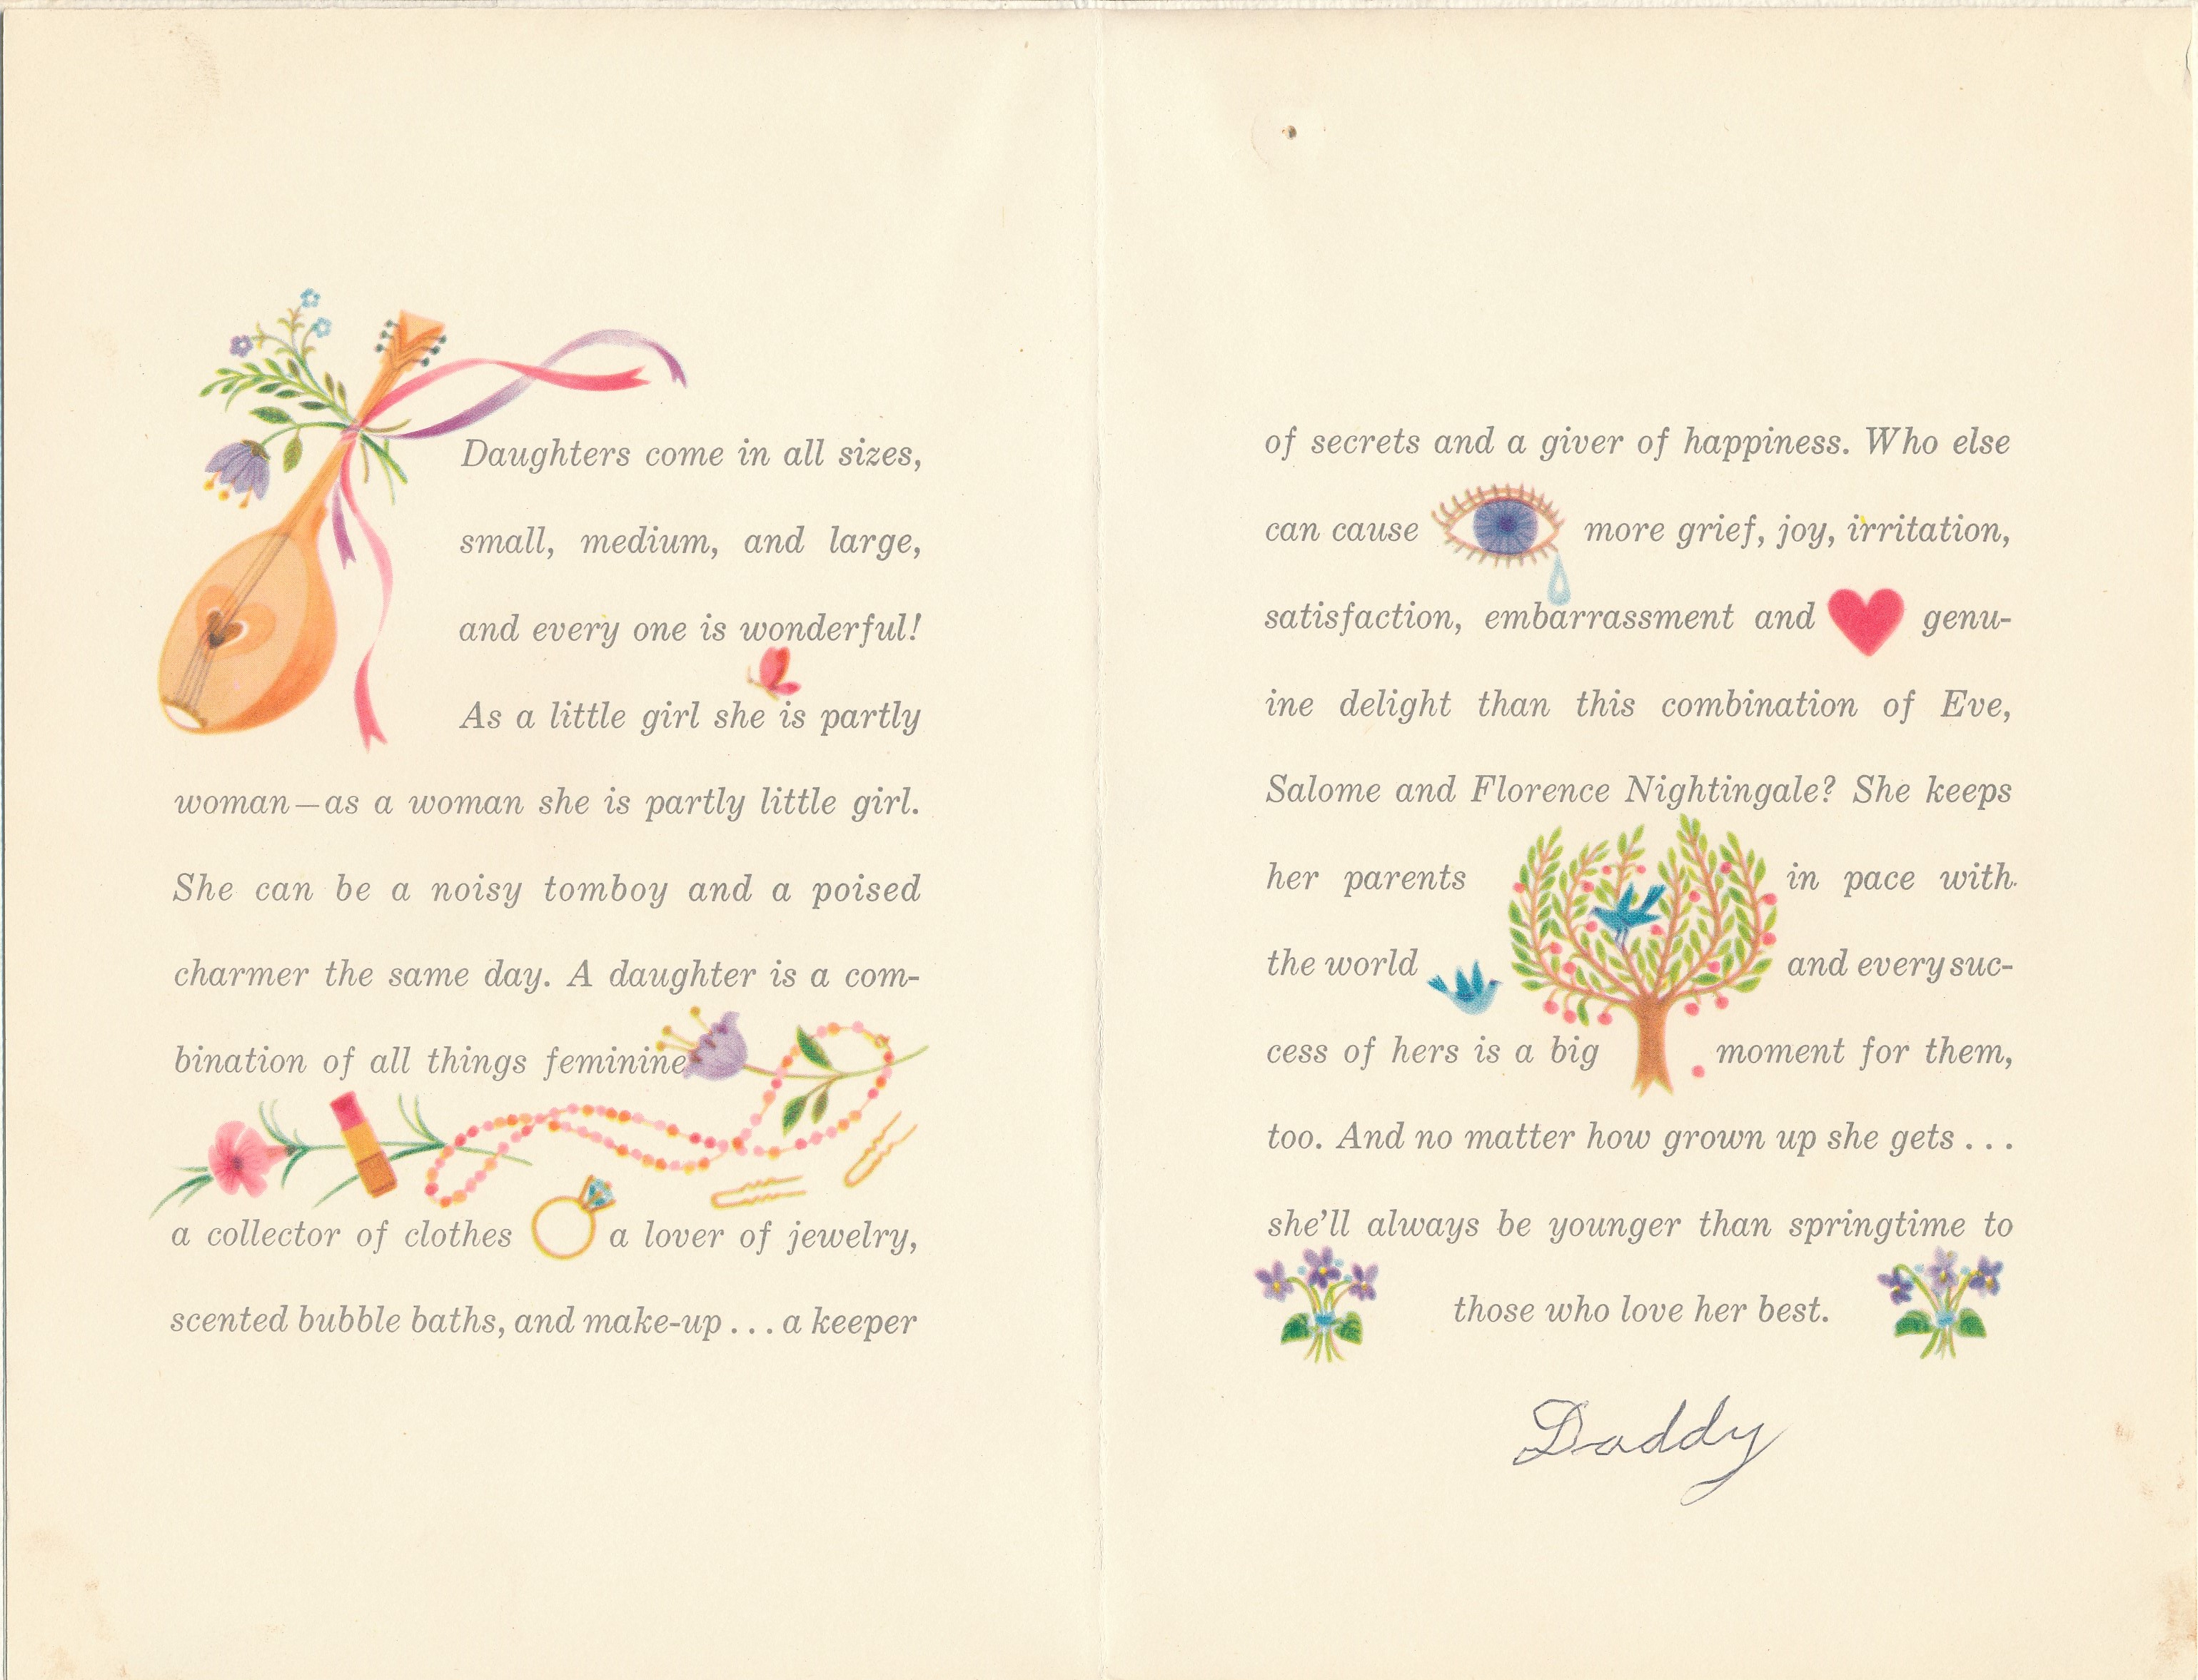 Daughters come in all sizes,
small, medium, and large,
and every one is wonderful!
As a little girl she is partly
woman—as a woman she is partly little girl.
She can be a noisy tomboy and a poised
charmer the same day. A daughter is a com-
bination of all things feminine
a collector of clothes a lover of jewelry,
scented bubble baths, and make-up . . . a keeper
of secrets and a giver of happiness. Who else
can cause more grief, joy, irritation,
satisfaction, embarrassment and genu-
ine delight than this combination of Eve,
Salome and Florence Nightingale? She keeps
her parents in pace with
the world and every suc-
cess of hers is a big moment for them,
too. And no matter how grown up she gets . . .
she'll always be younger than springtime to
those who love her best.
Daddy